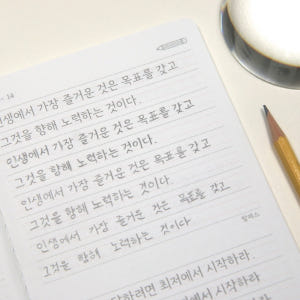 14
인생에서 가장 즐거운 것은 목표를 갖고
그것을 향해 노력하는 것이다.
인생에서 가장 즐거운 것은 목표를 갖고
그것을 향해 노력하는 것이다.
인생에서 가장 즐거운 것은 목표를 갖고
그것을 향해 노력하는 것이다.
인생에서 가장 즐거운 것은 목표를 갖고
그것을 향해 노력하는 것이다
탈레스
하려면 최저에서 시작하라.
에서 시작하라